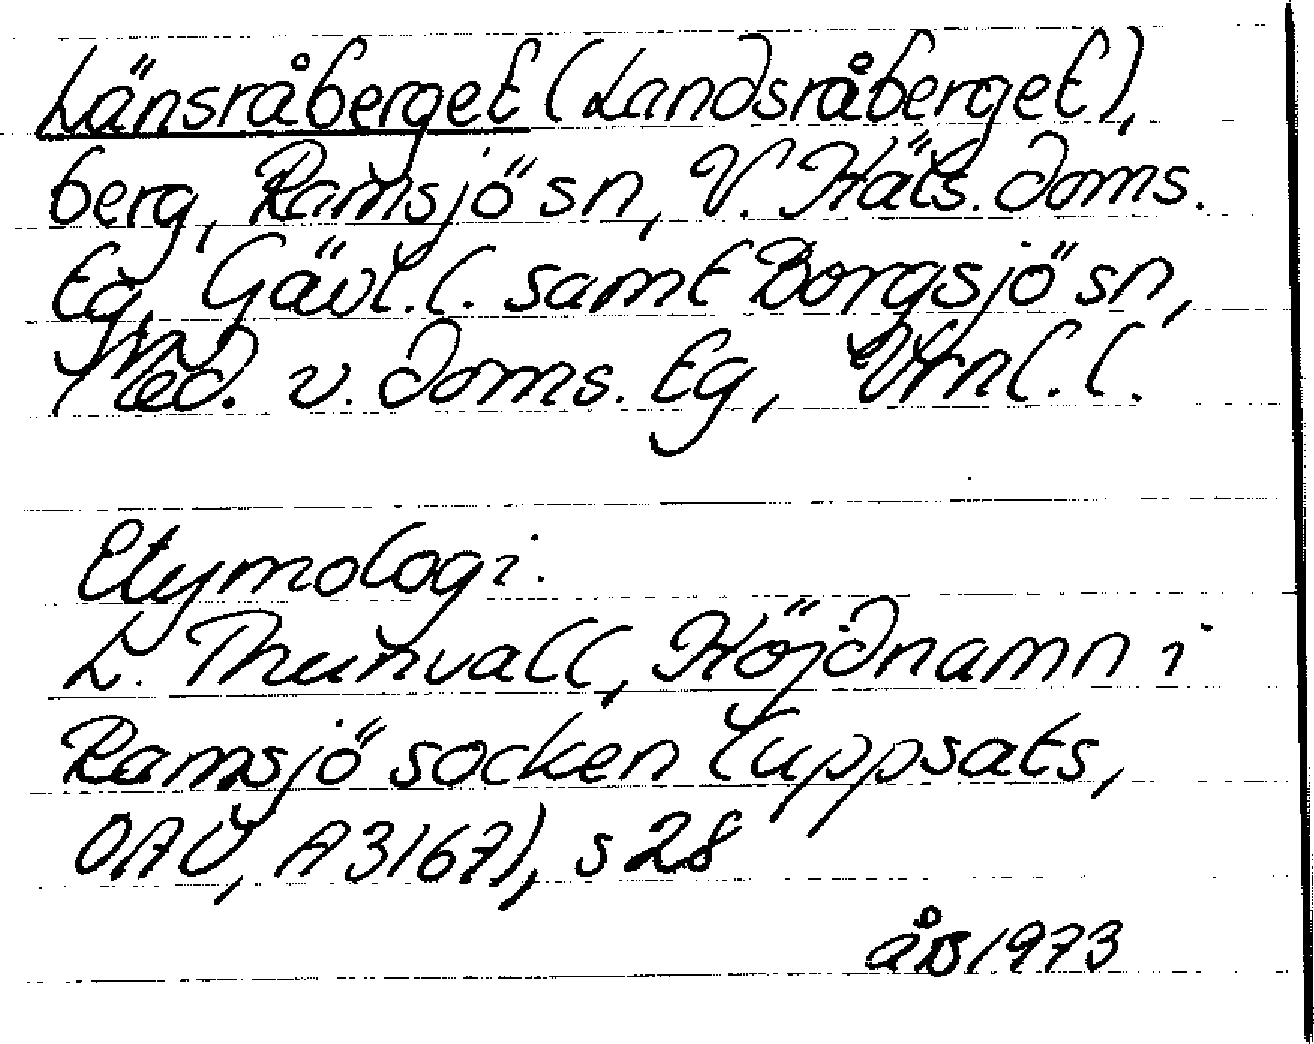 Länsråberget (Landsråberget),
berg, Ramsjö sn, V. Häls. doms.
tg, Gävl. l. samt Borgsjö sn,
Med. v. doms. tg, Vrnl. l.
Etymologi:
L. Thunvall, Höjdnamn i
Ramsjö socken (uppsats,
OAU, A 3167), s 28
åB 1973